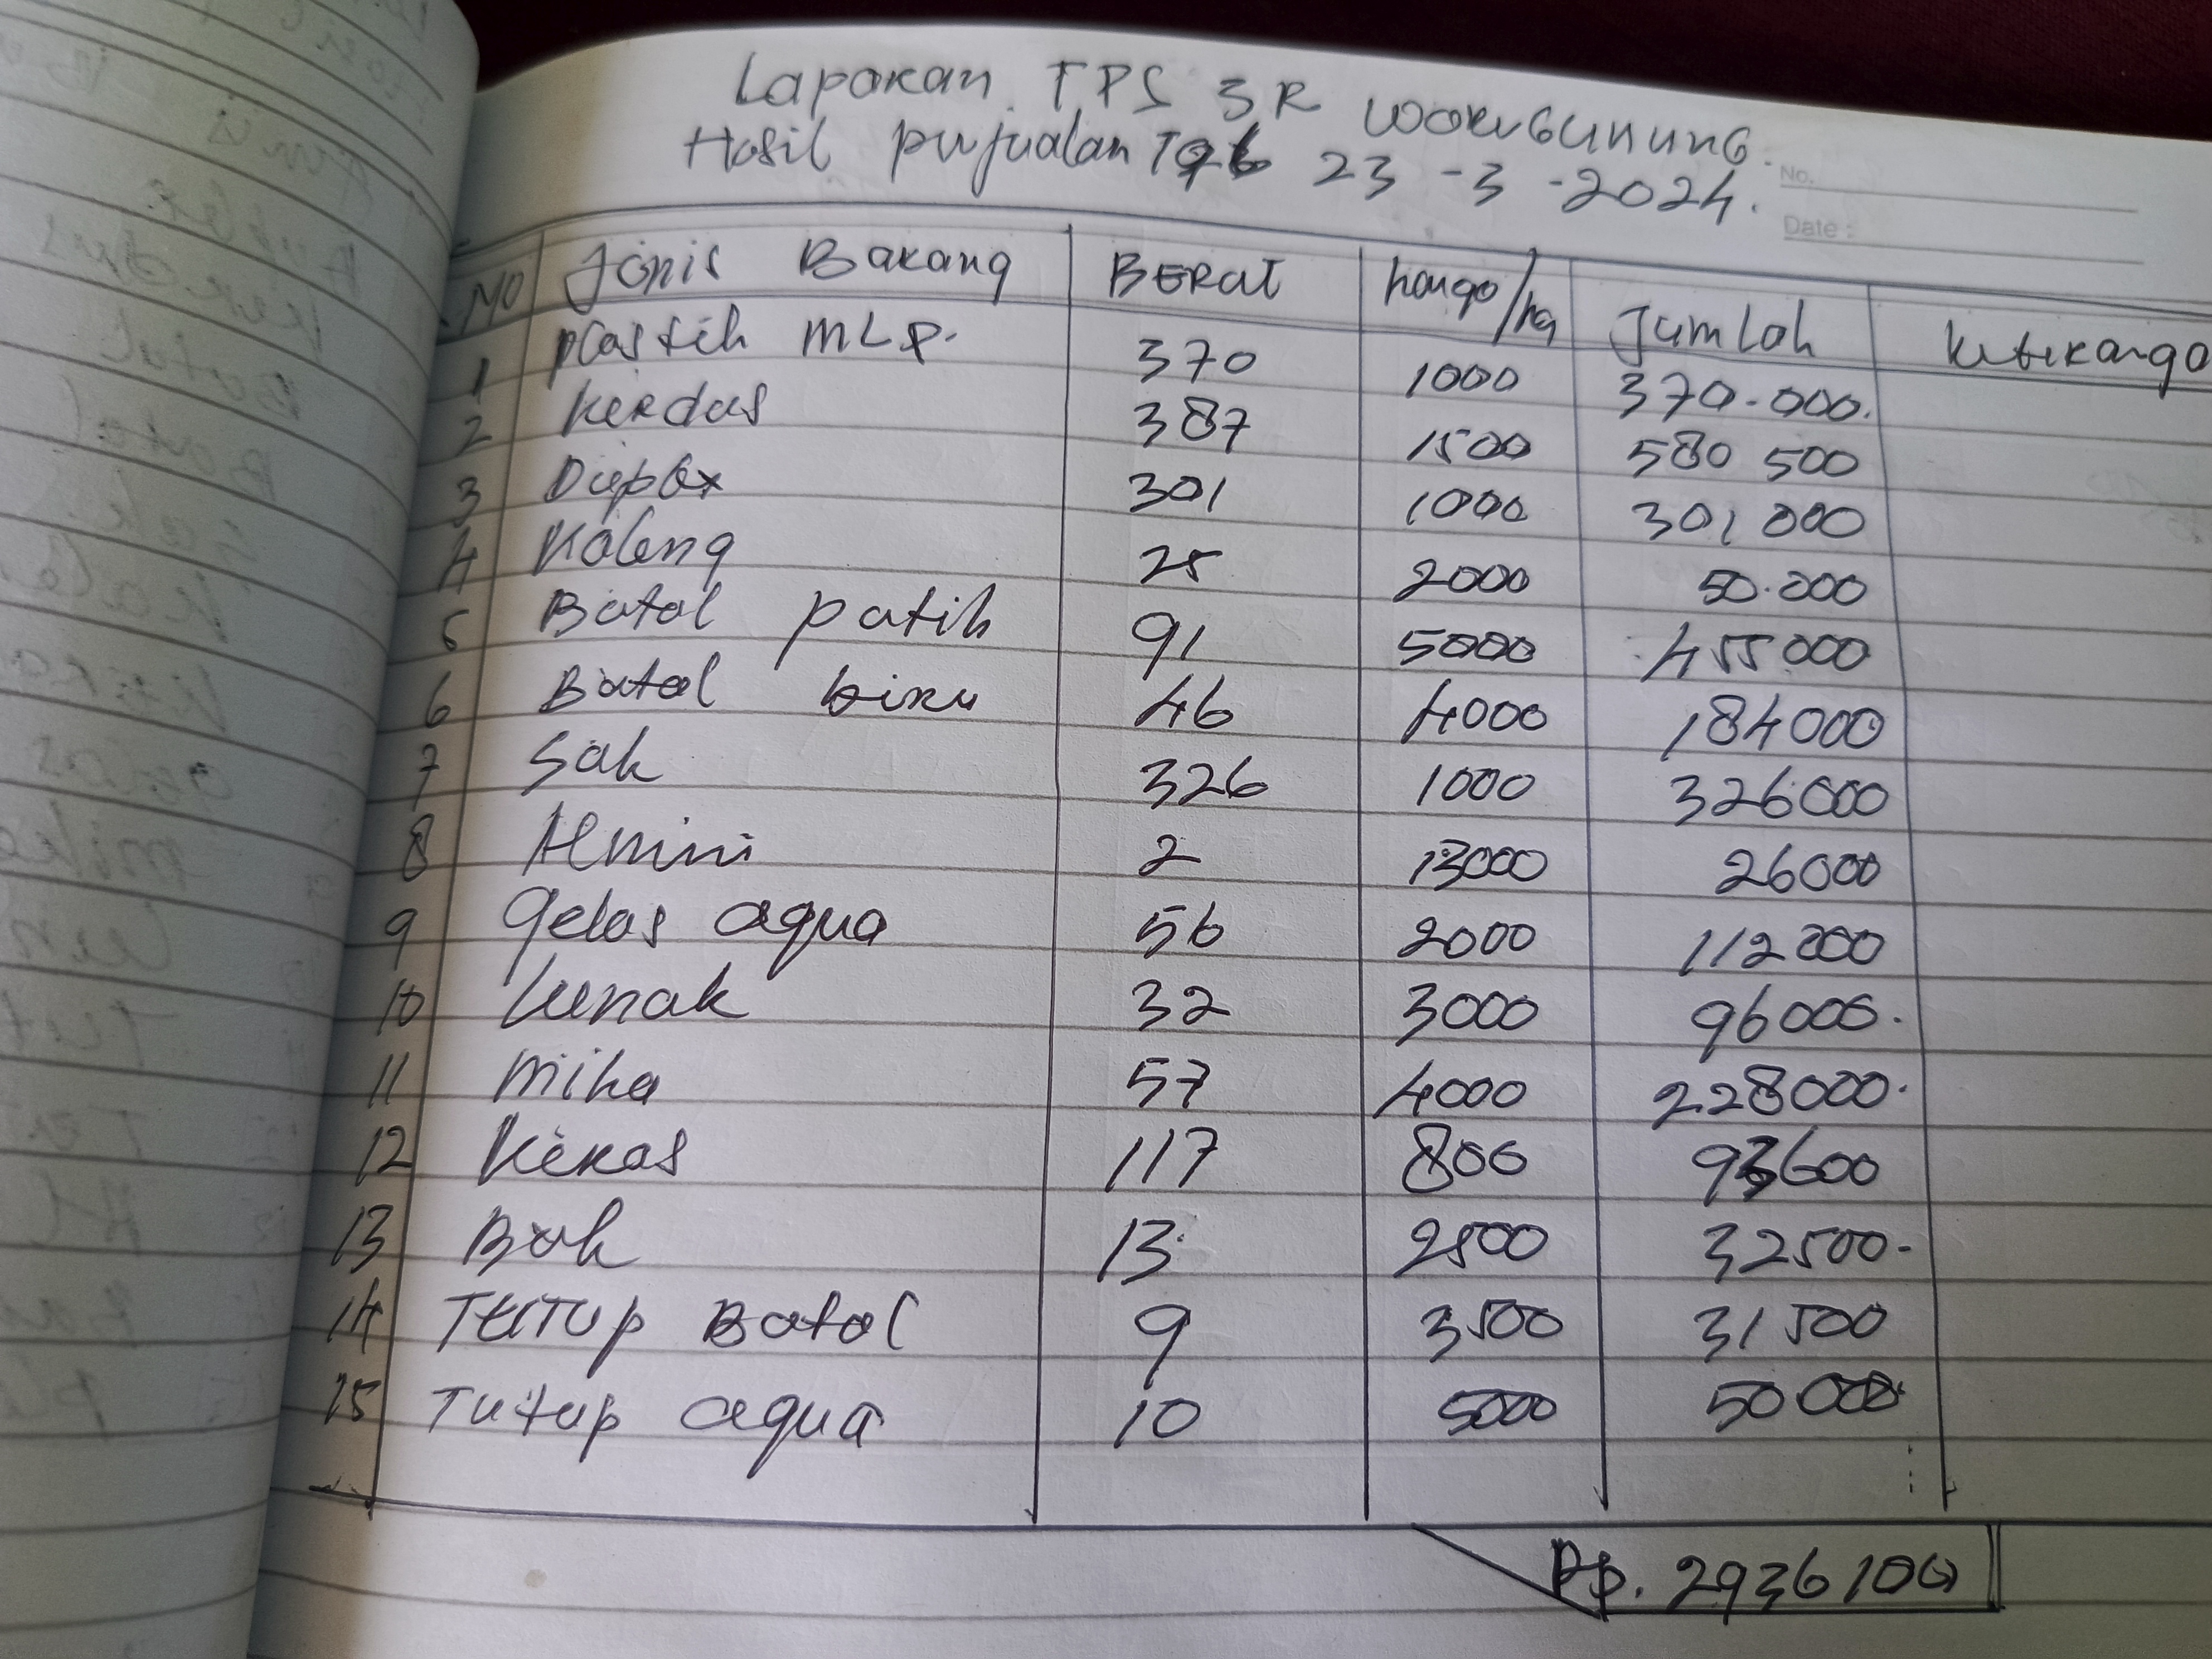 Laporan TPS 3R WARUGUNUNG.
Hasil penjualan Tgl 23 - 3 - 2024.
No.
Date :
NO Jenis Barang BERAT harga/kg Jumlah keterangan
1 plastik MLP. 370 1000 370.000.
2 Kerdus 387 1500 580 500
3 Duplex 301 1000 301 000
4 Kaleng 25 2000 50.000
5 Botol putih 91 5000 455000
6 Botol biru 46 4000 184000
7 Sak 326 1000 326000
8 Almini 2 13000 26000
9 gelas aqua 56 2000 112000
10 Lunak 32 3000 96000.
11 mika 57 4000 228000.
12 Keras 117 800 93600
13 Bak 13 2500 32500-
14 TUTUP Botol 9 3500 31500
15 Tutup aqua 10 5000 50000
Rp. 2936100